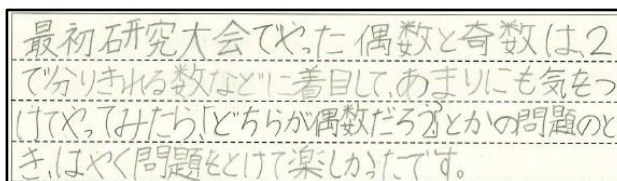 最初研究大会でやった偶数と奇数は、2
で分りきれる数などに着目して、あまりにも気をつ
けてやってみたら、「どちらが偶数だろう?」とかの問題のと
き、はやく問題をとけて楽しかったです。